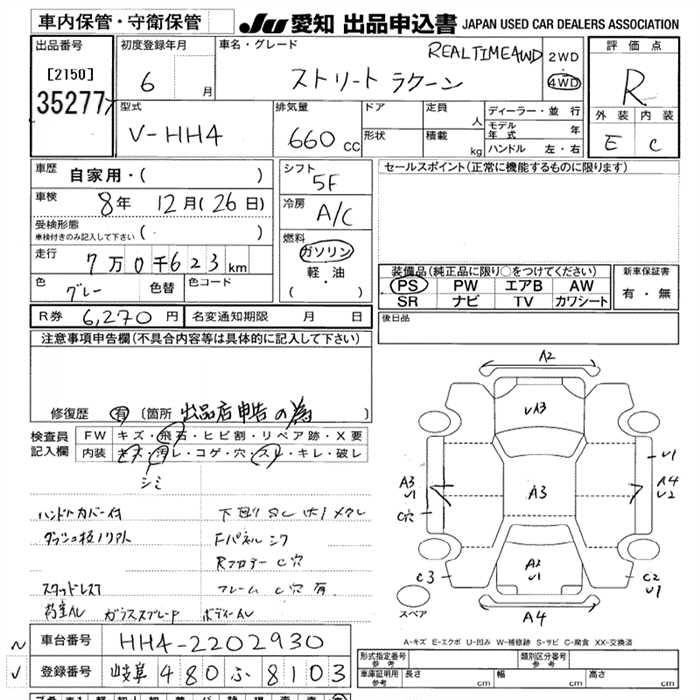 車内保管・守衛保管
JU 愛知 出品申込書 JAPAN USED CAR DEALERS ASSOCIATION
出品番号
[2150]
35277
初度登録年月
6 月
車名・グレード
REALTIME4WD
ストリート ラクーン
2WD
・
4WD
評価点
R
外装 内装
E C
型式
V-HH4
排気量
660 cc
ドア
形状
定員 人
積載 kg
ディーラー・並行
モデル年式 年
ハンドル 左・右
車歴 自家用・( )
車検 8年 12月(26日)
受検形態
車検付きのみ記入して下さい ( )
走行 7万0千623km
色 グレー 色替 色コード
R券 6,270円 名変通知期限 月 日
シフト
5F
冷房
A/C
燃料
ガソリン
軽・油
( ・ )
セールスポイント(正常に機能するものに限ります)
装備品(純正品に限り○をつけてください)
PS PW エアB AW
SR ナビ TV カワシート
新車保証書
有・無
後日品
注意事項申告欄(不具合内容等は具体的に記入して下さい)
修復歴 有 [箇所 出品店申告の為 ]
検査員記入欄
FW キズ・飛石・ヒビ割・リペア跡・X要
内装 キズ・汚レ・コゲ・穴・スレ・キレ・破レ
シミ
ハンドルカバー付
下廻りサビ
Fパネルシワ
Rフロアー C穴
スタッドレス
フレーム C穴 有
A2
VA3
A3
V1
C穴
A3
V1
A4
V2
A2
V1
C3
C2
V1
A4
スペア
A-キズ E-エクボ U-凹み W-補修跡 S-サビ C-腐食 XX-交換済
車台番号 HH4-2202930
登録番号 岐阜 480 ふ 8103
形式指定番号 参考
類別区分番号 参考
車庫証明用 参考
長さ cm 幅 cm 高さ cm